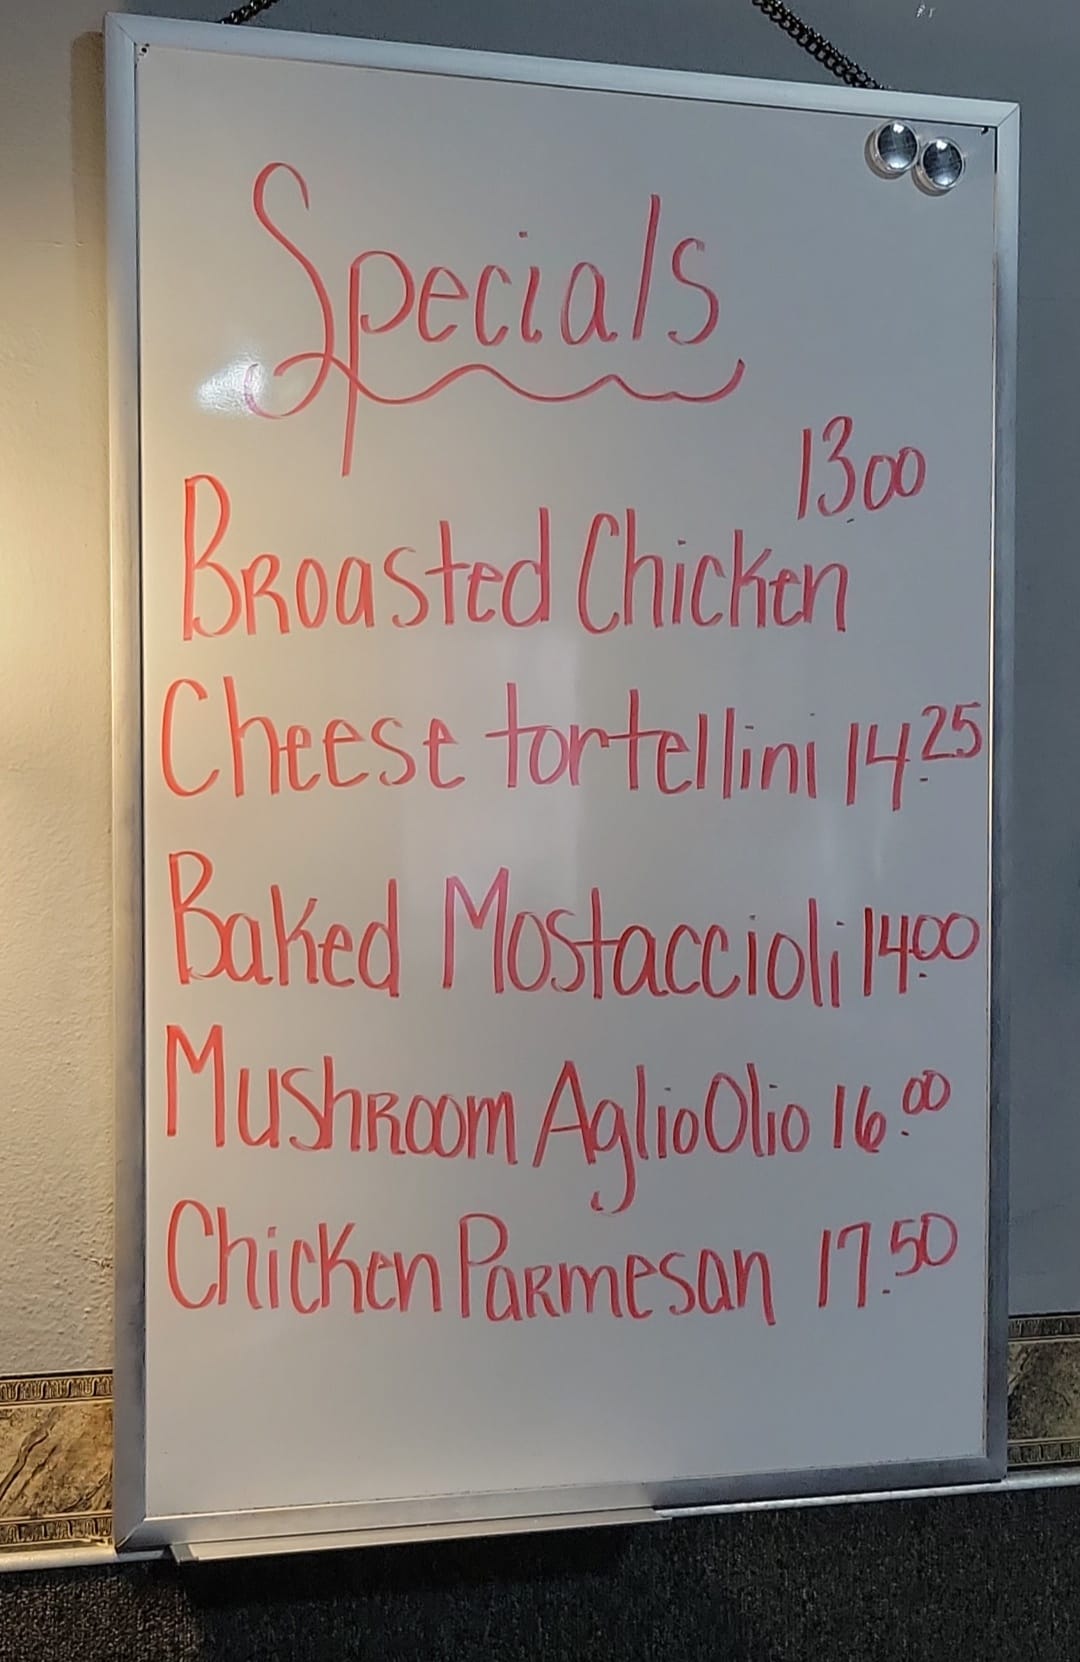 Specials
13.00
Broasted Chicken
Cheese tortellini 14.25
Baked Mostaccioli 14.00
Mushroom Aglio Olio 16.00
Chicken Parmesan 17.50